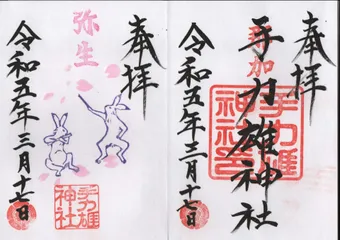 奉拝
各加
手力雄神社
手力雄
神社印
令和五年三月十七日
奉拝
弥生
手力雄
神社
令和五年三月十七日